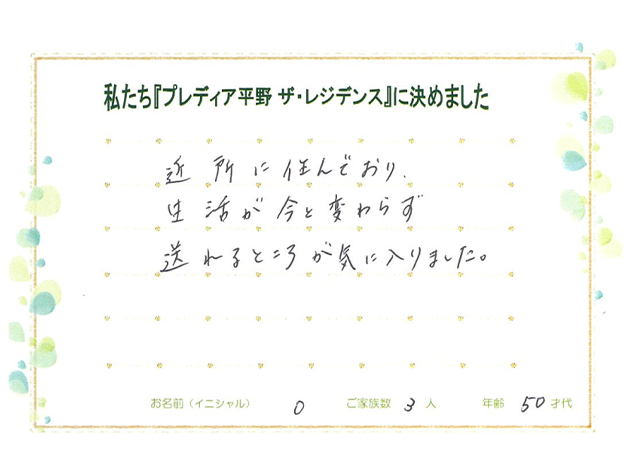 私たち『プレディア平野 ザ・レジデンス』に決めました
近所に住んでおり、
生活が今と変わらず
送れるところが気に入りました。
お名前（イニシャル） O ご家族数 3 人 年齢 50 才代